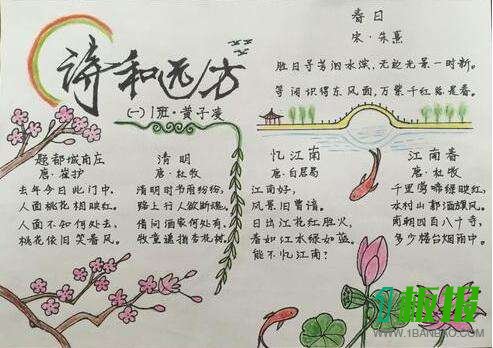 诗和远方
(一)1班·黄子凌
春日
宋·朱熹
胜日寻芳泗水滨，无边光景一时新。
等闲识得东风面，万紫千红总是春。
题都城南庄
唐·崔护
去年今日此门中，
人面桃花相映红。
人面不知何处去，
桃花依旧笑春风。
清明
唐·杜牧
清明时节雨纷纷，
路上行人欲断魂。
借问酒家何处有，
牧童遥指杏花村。
忆江南
唐·白居易
江南好，
风景旧曾谙。
日出江花红胜火，
春如江水绿如蓝。
能不忆江南？
江南春
唐·杜牧
千里莺啼绿映红，
水村山郭酒旗风。
南朝四百八十寺，
多少楼台烟雨中。
板报
WWW.1BANBAO.COM